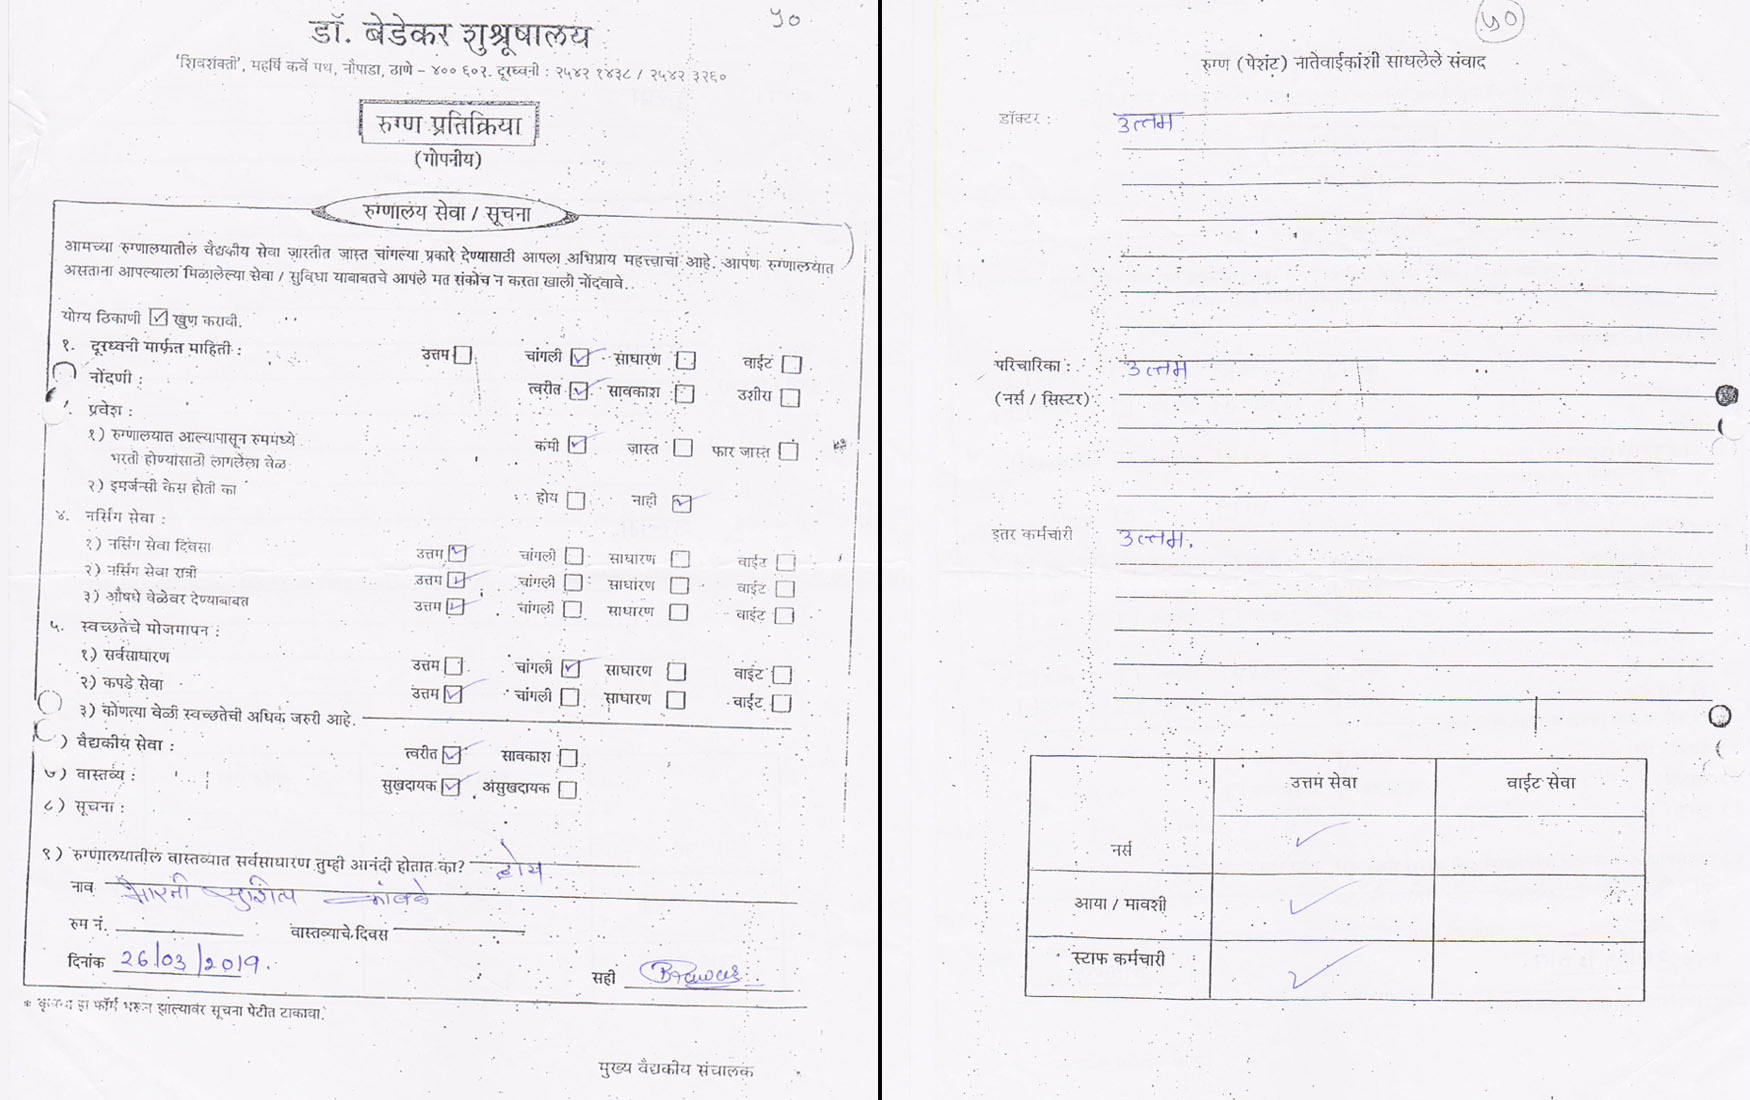 ५०
डॉ. बेडेकर शुश्रूषालय
'शिवशक्ती', महर्षि कर्वे पथ, नौपाडा, ठाणे – ४०० ६०२. दूरध्वनी : २५४२ १४३८ / २५४२ ३२६०
रुग्ण प्रतिक्रिया
(गोपनीय)
रुग्णालय सेवा / सूचना
आमच्या रुग्णालयातील वैद्यकीय सेवा जास्तीत जास्त चांगल्या प्रकारे देण्यासाठी आपला अभिप्राय महत्त्वाचा आहे. आपण रुग्णालयात
असताना आपल्याला मिळालेल्या सेवा / सुविधा याबाबतचे आपले मत संकोच न करता खाली नोंदवावे.
योग्य ठिकाणी ☑ खुण करावी.
१. दूरध्वनी मार्फत माहिती : उत्तम ☐ चांगली ☑ साधारण ☐ वाईट ☐
नोंदणी : त्वरीत ☑ सावकाश ☐ उशीरा ☐
प्रवेश :
१) रुग्णालयात आल्यापासून रुममध्ये कमी ☑ जास्त ☐ फार जास्त ☐
भरती होण्यासाठी लागलेला वेळ
२) इमर्जन्सी केस होती का होय ☐ नाही ☑
४. नर्सिंग सेवा :
१) नर्सिंग सेवा दिवसा उत्तम ☑ चांगली ☐ साधारण ☐ वाईट ☐
२) नर्सिंग सेवा रात्री उत्तम ☑ चांगली ☐ साधारण ☐ वाईट ☐
३) औषधे वेळेवर देण्याबाबत उत्तम ☑ चांगली ☐ साधारण ☐ वाईट ☐
५. स्वच्छतेचे मोजमापन :
१) सर्वसाधारण उत्तम ☐ चांगली ☑ साधारण ☐ वाईट ☐
२) कपडे सेवा उत्तम ☑ चांगली ☐ साधारण ☐ वाईट ☐
३) कोणत्या वेळी स्वच्छतेची अधिक जरुरी आहे.
) वैद्यकीय सेवा : त्वरीत ☑ सावकाश ☐
७) वास्तव्य : सुखदायक ☑ असुखदायक ☐
८) सूचना :
९) रुग्णालयातील वास्तव्यात सर्वसाधारण तुम्ही आनंदी होतात का? होय
नाव कांबळे
रुम नं. वास्तव्याचे दिवस
दिनांक 26/03/2019. सही
* कृपया हा फॉर्म भरून झाल्यावर सूचना पेटीत टाकावा.
मुख्य वैद्यकीय संचालक
५०
रुग्ण (पेशंट) नातेवाईकांशी साधलेले संवाद
डॉक्टर : उत्तम
परिचारिका : उत्तम
(नर्स / सिस्टर)
इतर कर्मचारी उत्तम.
उत्तम सेवा वाईट सेवा
नर्स ✓
आया / मावशी ✓
स्टाफ कर्मचारी ✓